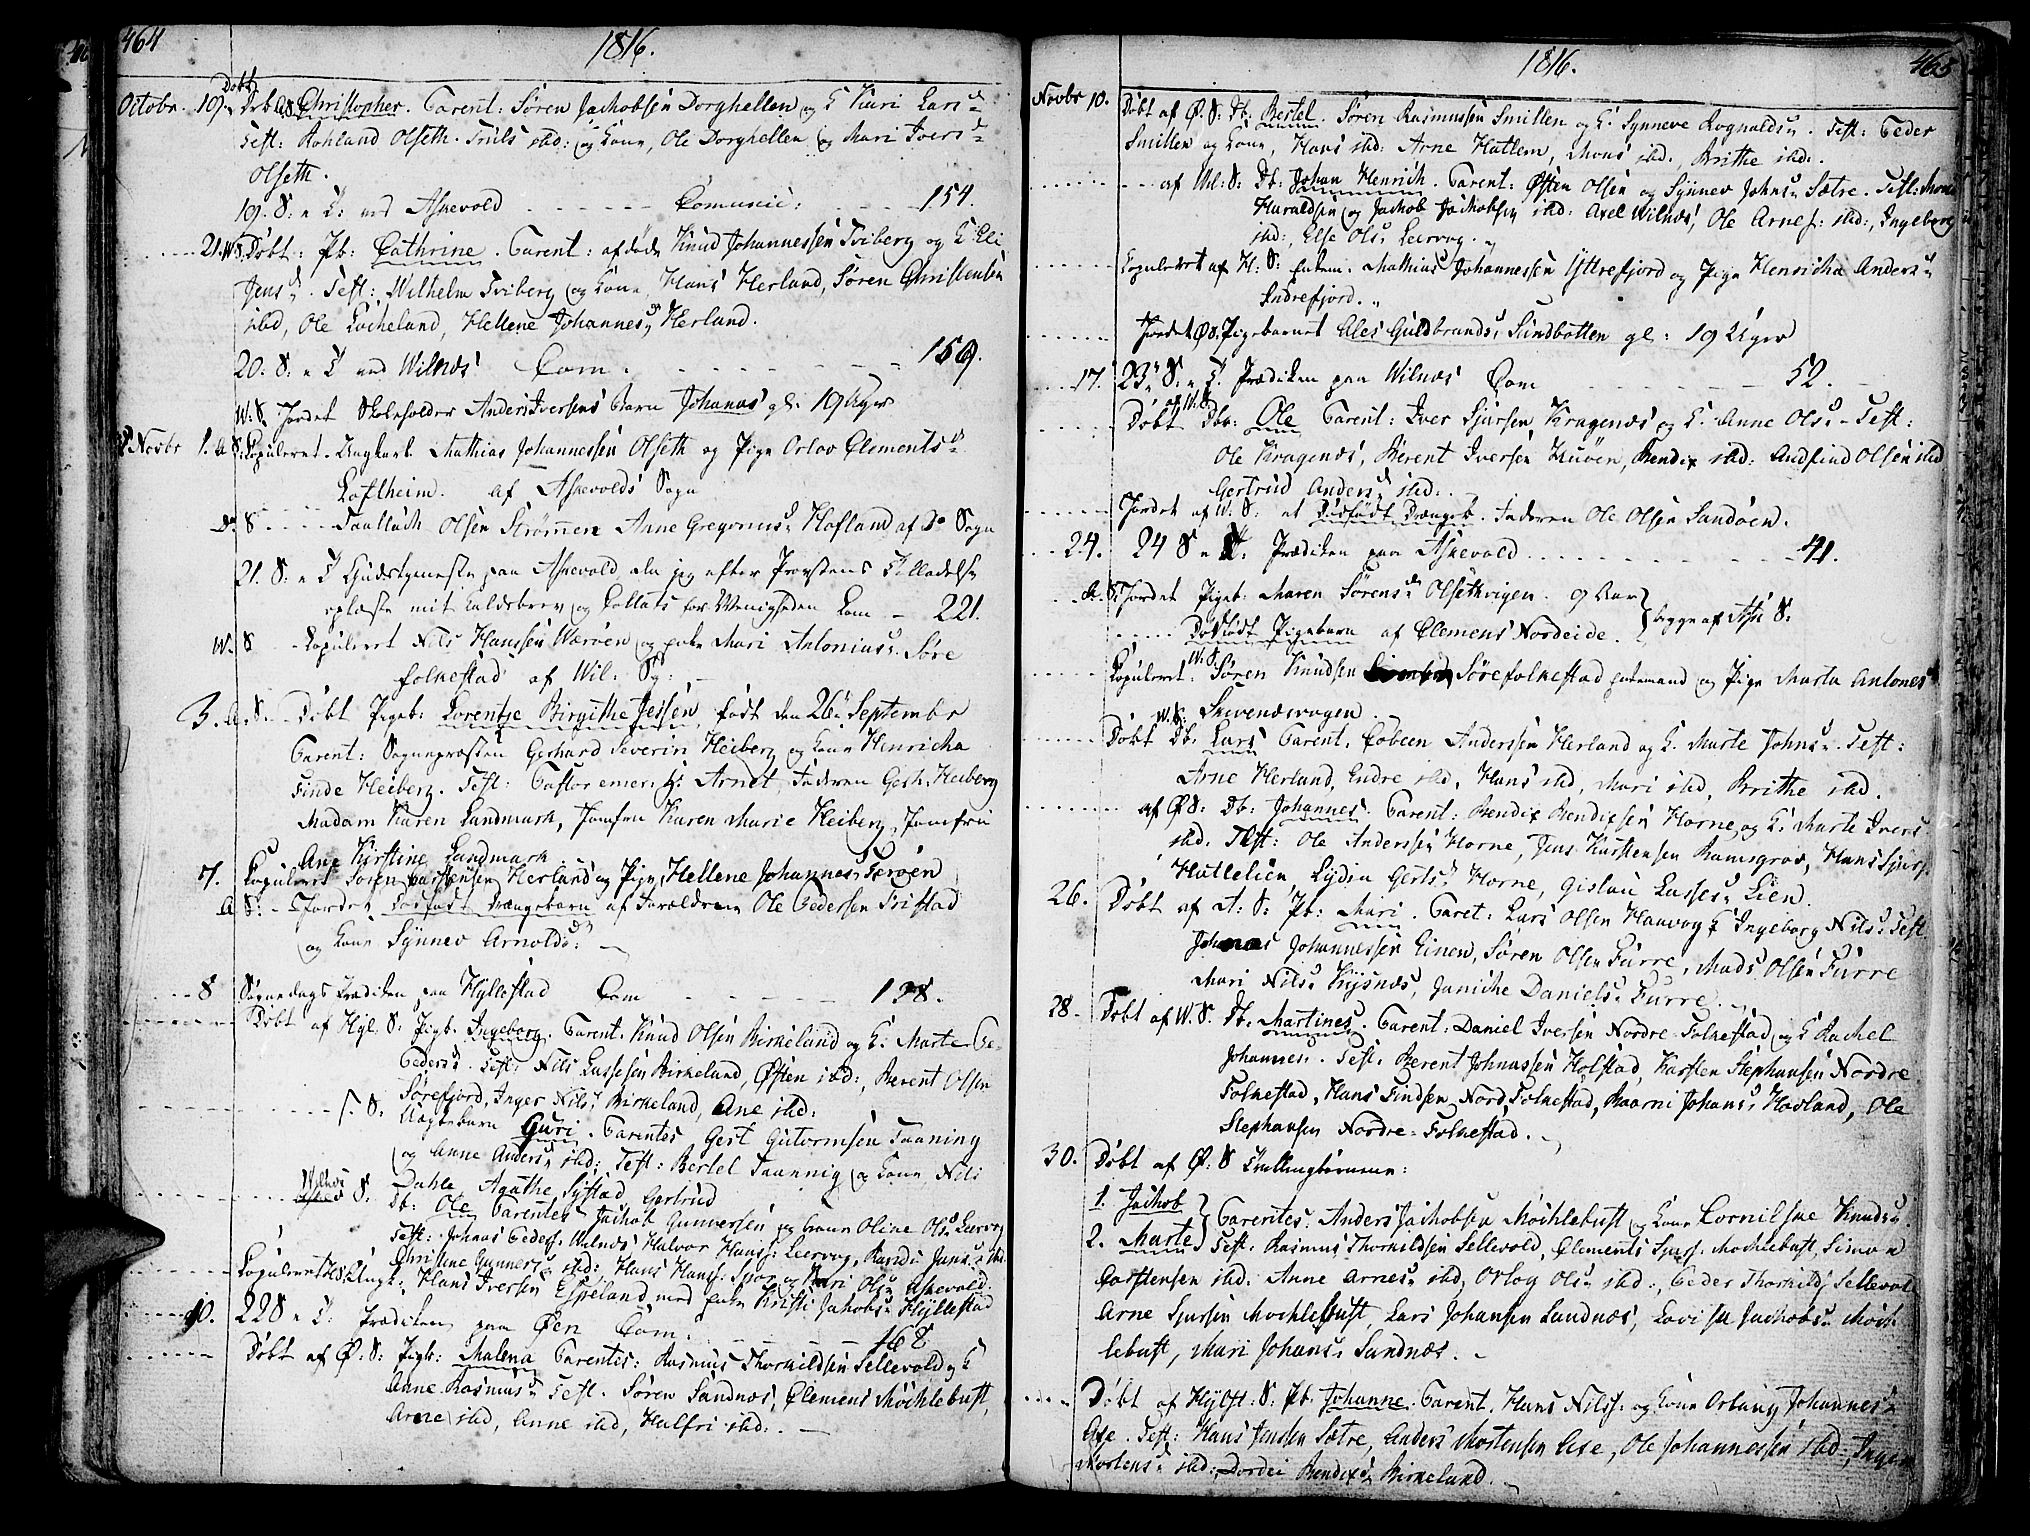 464
1816.
Döbt
Octobr. 19. Db. Christopher. Parent: Sören Jachobsen Dorghellen og K Kari Lars d
Test: Rohland Olseth. Truls ibid: og Kone, Ole Dorghellen og Mari Ivers d
Olseth.
19. S: n T: ved Askevold Comunic: 154.
21. W. S. Döbt: Pb: Cathrine. Parent: afdöde Knud Johannessen Tviberg og K Eli
Jens d. Test: Wilhelm Tviberg og Kone, Hans Herland, Sören Christensen
ibid, Ole Locheland, Hellene Johannes d Herland.
20: S: n T ved Wilnæs Com. 159.
W: S. Jordet Skoleholder Anders Iversens Barn Johanas gl: 19 Uger
Novbr 1. A S: Copuleret Ungkarl Mathias Johannessen Olseth og Pige Orlov Clements d
Loftheim. af Askevolds Sogn
Do S Taallach Olsen Strømen Anne Gregorius d Hafland af Do Sogn
21. S. n T Gudstjeneste paa Askevold, da jeg efter Provstens Tilladelse
oplæste mit Kaldsbrev og Collats for Menigheden Com 221.
W. S Copuleret Nils Hanssen Værøen og enke Mari Antonius d Söre
folkestad af Wil: S:
3. A. S. Döbt Pigeb: Lorentze Birgithe Jessen, födt den 26 September
Parent: Sognepræsten Gerhard Severin Heiberg og Kone Henricha
Finde Heiberg. Test: Pastor emer: Hr Arnet, Faderen Gerh. Heiberg
Madam Karen Landmark, Jomfru Karen Marie Heiberg, Jomfru
Ane Kirstine Landmark.
7. Copuleret Sören Carstensen Herland og Pige Hellene Johannes d Færöen
A S: Jordet Dödfödt Drængebarn af Forældrene Ole Pedersen Tristad
og Kone Synnev Arnolds d:
8 Sognedags Prædiken paa Hyllestad Com 198.
Döbt af Hyl. S: Pigb. Ingeborg. Parent. Knud Olsen Birkeland og K. Marte Pe-
Peders d. Test: Nils Lassesen Birkeland, Østen ibid:, Berent Olsen
Sörefjord, Inger Nils d Birkeland, Ane ibid:
S. Uægtebarn Guri. Parentes Gert Gutormsen Taaning
og Anne Anders d ibid: Test: Bertel Taannig og Kone Nils
Dahle Agathe Systad, Gertrud
Wilnæs S. Db: Ole Parentes Jachob Gunnersen og Kone Oline Ols d Leervog
Test: Johnas Peders. Wilnæs Halvor Hans: Leervog, Randi Jans d ibid
Christine Gunners d ibid: Hans Hans: Spor og Mari Ols d Askevold
Copuleret H S. Ungk: Hans Iversen Espeland med enke Kristi Jakobs d Hyllestad
10. 22 S n T. Prædiken paa Øen Com. 168
Döbt af Ø: S: Pigb: Malena Parentes: Rasmus Thorkildsen Sellevold og K
Anne Rasmus d Test. Sören Sandnæs, Clemens Möchlebust,
Arne ibid, Anne ibid, Halfri ibid:.
1816.
465
Novbr 10. Döbt af Ø. S: Db: Bertel. Sören Rasmussen Smillen og K. Synneve Rognalds d. Test: Peder
Smillen og Kone, Hans ibid: Arne Hatlem, Mons ibid., Brithe ibid:.
af Wil: S: Db: Johan Henrich. Parent: Østen Olsen og Synnev Johns d Sætre. Test: Mons
Haraldsen og Jachob Jachobsen ibid: Axel Wilnæs, Ole Arnes: ibid:, Ingeborg
ibid:, Else Ols d Leervog.
Copuleret af H: S: Enkem. Mathias Johannessen Yttrefjord og Pige Henricha Anders d
Indrefjord.
Jordet Øs. Pigebarnet Eles Guldbrands d Sundbotten gl: 19 Uger
17. 23 S. n T. Prædiken paa Wilnæs Com 52.
Döbt af W. S. Db: Ole Parent: Iver Sjursen Kragenæs og K. Anne Ols d. Test:
Ole Kragenæs, Berent Iversen Huöen, Bendix ibid: Andfind Olsen ibid
Gertrud Anders d ibid:.
Jordet af W. S: et Dödfödt Drængeb. Faderen Ole Olsen Sandöen.
24. 24 S n T. Prædiken paa Askevold 41.
A. S: Jordet Pigeb. Maren Sörens d Olsethvigen. og Bar
Dödfödt Pigebarn af Clemens Nordeide. begge af Ask S:
Copuleret. W. S. Sören Knudsen Sörefolkestad enkemand og Pige Marta Antones d
Skevenesvogen.
W. S: Döbt Db. Lars Parent. Cobeen Anderssen Herland og K. Marte Johns d. Test:
Arne Herland, Endre ibid, Hans ibid, Mari ibid, Brithe ibid.
af Ø S: Db: Johannes. Parent: Bendix Bendixsen Horne, og K. Marte Ivers
ibid. Test: Ole Anderssen Horne, Jens Karstensen Ramsgrov, Hans Sjurs.
Hatlelien Lydia Gerts d Horne, Gislau Lasses d Lien.
26. Döbt af A: S: Pb: Mari. Paret: Lars Olsen Haavog K Ingeborg Nils d Test
Johnas Johannessen Einen, Sören Olsen Furre, Mads Olsen Furre
Mari Nils d Kysnæs, Janiche Daniels d Furre.
28. Döbt af W. S. Db. Martines. Parent: Daniel Iversen Nordre Folkestad og K Rachel
Johannes d. Test. Berent Johnassen Holstad, Karsten Stephansen Nordre
Folkestad, Hans Findsen Nord. Folkestad, Baarni Johans d Hovland, Ole
Stephansen Nordre-Folkestad.
30. Döbt af Ø: S Tvillingbörnene:
1. Jachob
2. Marte
Parentes: Anders Jachobsen Möchlebust og Kone Cornilsae Knuds d.
Test. Rasmus Thorkildsen Sellevold, Clements Sjurs. Mochlebust, Simon
Carstensen ibid: Anne Arnes d ibid, Orlog Ols d ibid:, Peder Thorkilds Sellevold
Arne Sjursen Mochlebust, Lars Johansen Sandnæs, Lovise Jachobs d Möch-
lebust, Mari Johans d Sandnæs.
Döbt af Hylst: S: Pb. Johanne. Parent. Hans Nilss. og Kone Orlaug Johannes d
Ase. Test: Hans Jenssen Sætre, Anders Mortensen Ase, Ole Johannessen ibid, Inger
Mortens d ibid: Dordei Bendix d Birkeland.